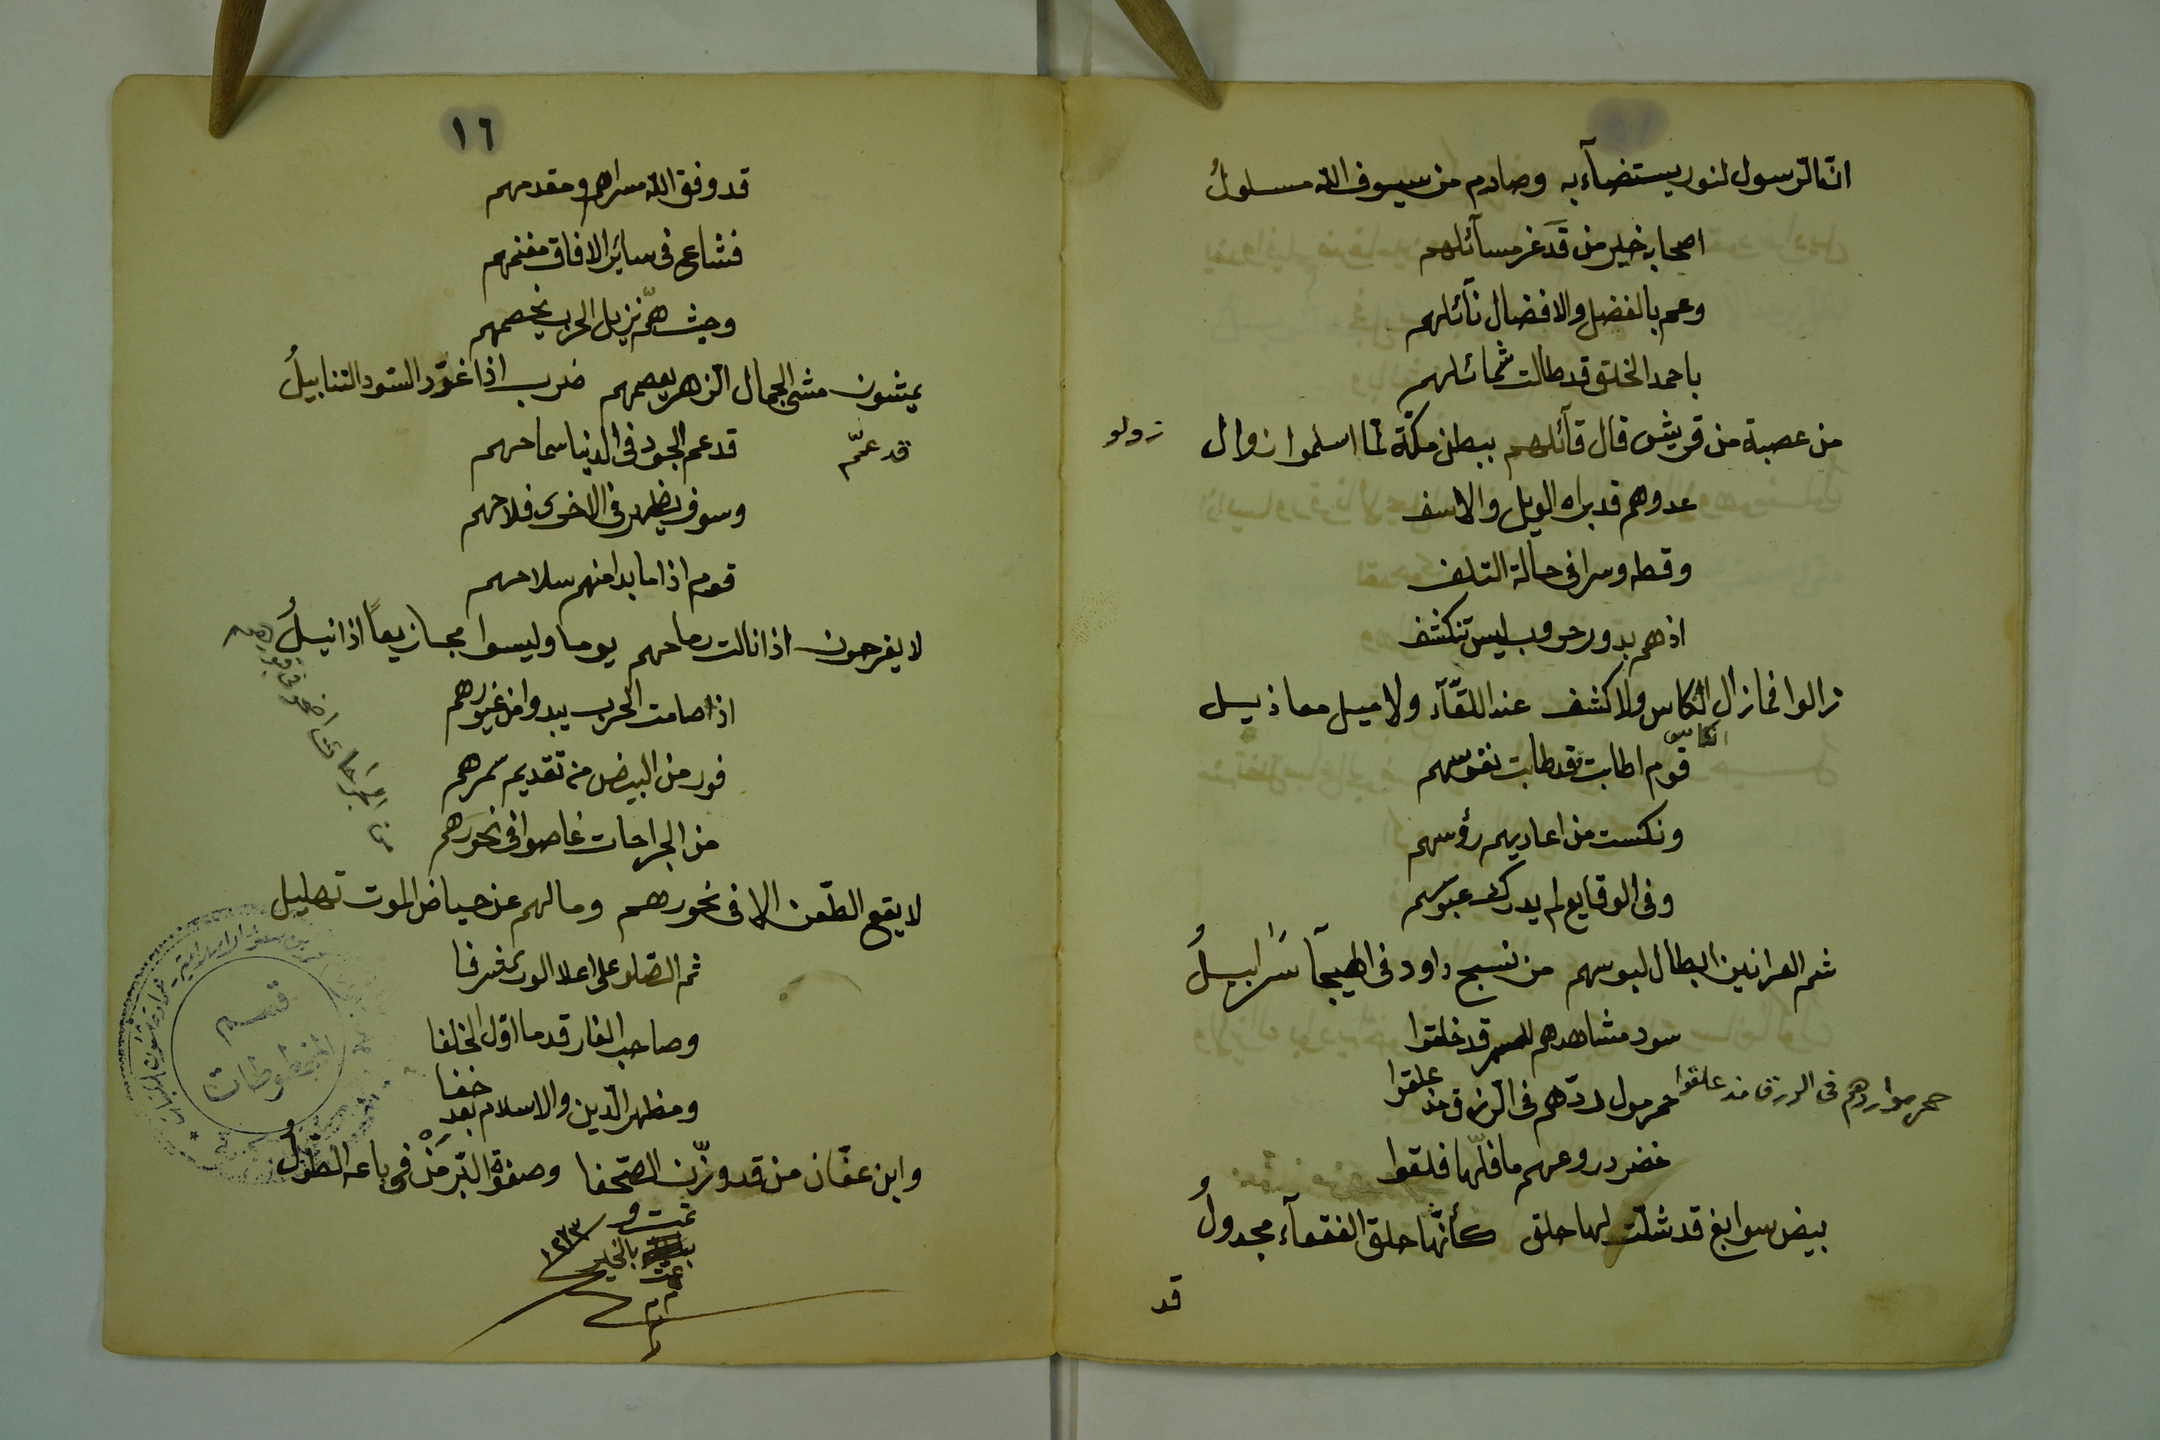 انّ الرسول لنور يستضآء به وصارم من سيوف الله مسلولُ
اصحابه خير من قد عز مسآئلهم
وعم بالفضل والافضال نآئلهم
باحمد الخلق قد طالت شمائلهم
من عصبة من قريش قال قآئلهم ببطن مكّة لمّا اسلموا زوال
زولو
عدوهم قد براه الويل والاسف
وقطه وسرا فى حالة التلف
اذهم بدور حروب ليس تنكشف
زالوا فما زال انكاس ولا كشف عند اللقآء ولا ميل معاذيل
انكاس
قوم اطابت قد طابت نفوسهم
ونكست من اعاديهم رؤسهم
وفى الوقايع لم يدرك عبوسهم
شم العرانين ابطال لبوسهم من نسج داود فى الهيجآ سرابيلُ
سود مشاهدهم للسمر قد خلقوا
حمر مواردهم فى الزرق مذ علقوا
حمر مواردهم فى الزرق مذ علقوا
خضر دروعهم ما فلّها فلقوا
بيض سوابغ قد شكّت لها حلق كأنّها حلق القفعآء مجدولُ
قد
١٦
قد وفق الله مسراهم ومقدمهم
فشاع فى سائر الافاق مغنمهم
وحيث همّ نزيل الحرب يخصمهم
يمشون مشى الجمال الزهر يعصمهم ضرب اذا غرّد السّود التنابيلُ
قد عم الجود فى الدنيا سماحهم
قد عمّم
وسوف يظهر فى الاخرى فلاحهم
قوم اذا ما بدا منهم سلاحهم
لا يفرحون اذا نالت رماحهم يوما وليسوا مجازيعاً اذا نيلُ
اذا صامت الحرب يبدوا من غيورهم
فور من البيض من تقديم سمرهم
من الجراحات غاصوا فى نحورهم
من الجراحات
لا يقع الطّعن الا فى نحورهم وما لهم عن حياض الموت تهليل
ثم الصّلو على اعلا الورى شرفا
وصاحب الغار قدما اوّل الخلفا
ومظهر الدّين والاسلام بعد خفا
وابن عفّان من قد وزّن الصّحفا وصفوة البّر من فى باعه الطّولُ
تمت و
بالخير
عمت
١٢٧٣
م م م
قسم
المخطوطات